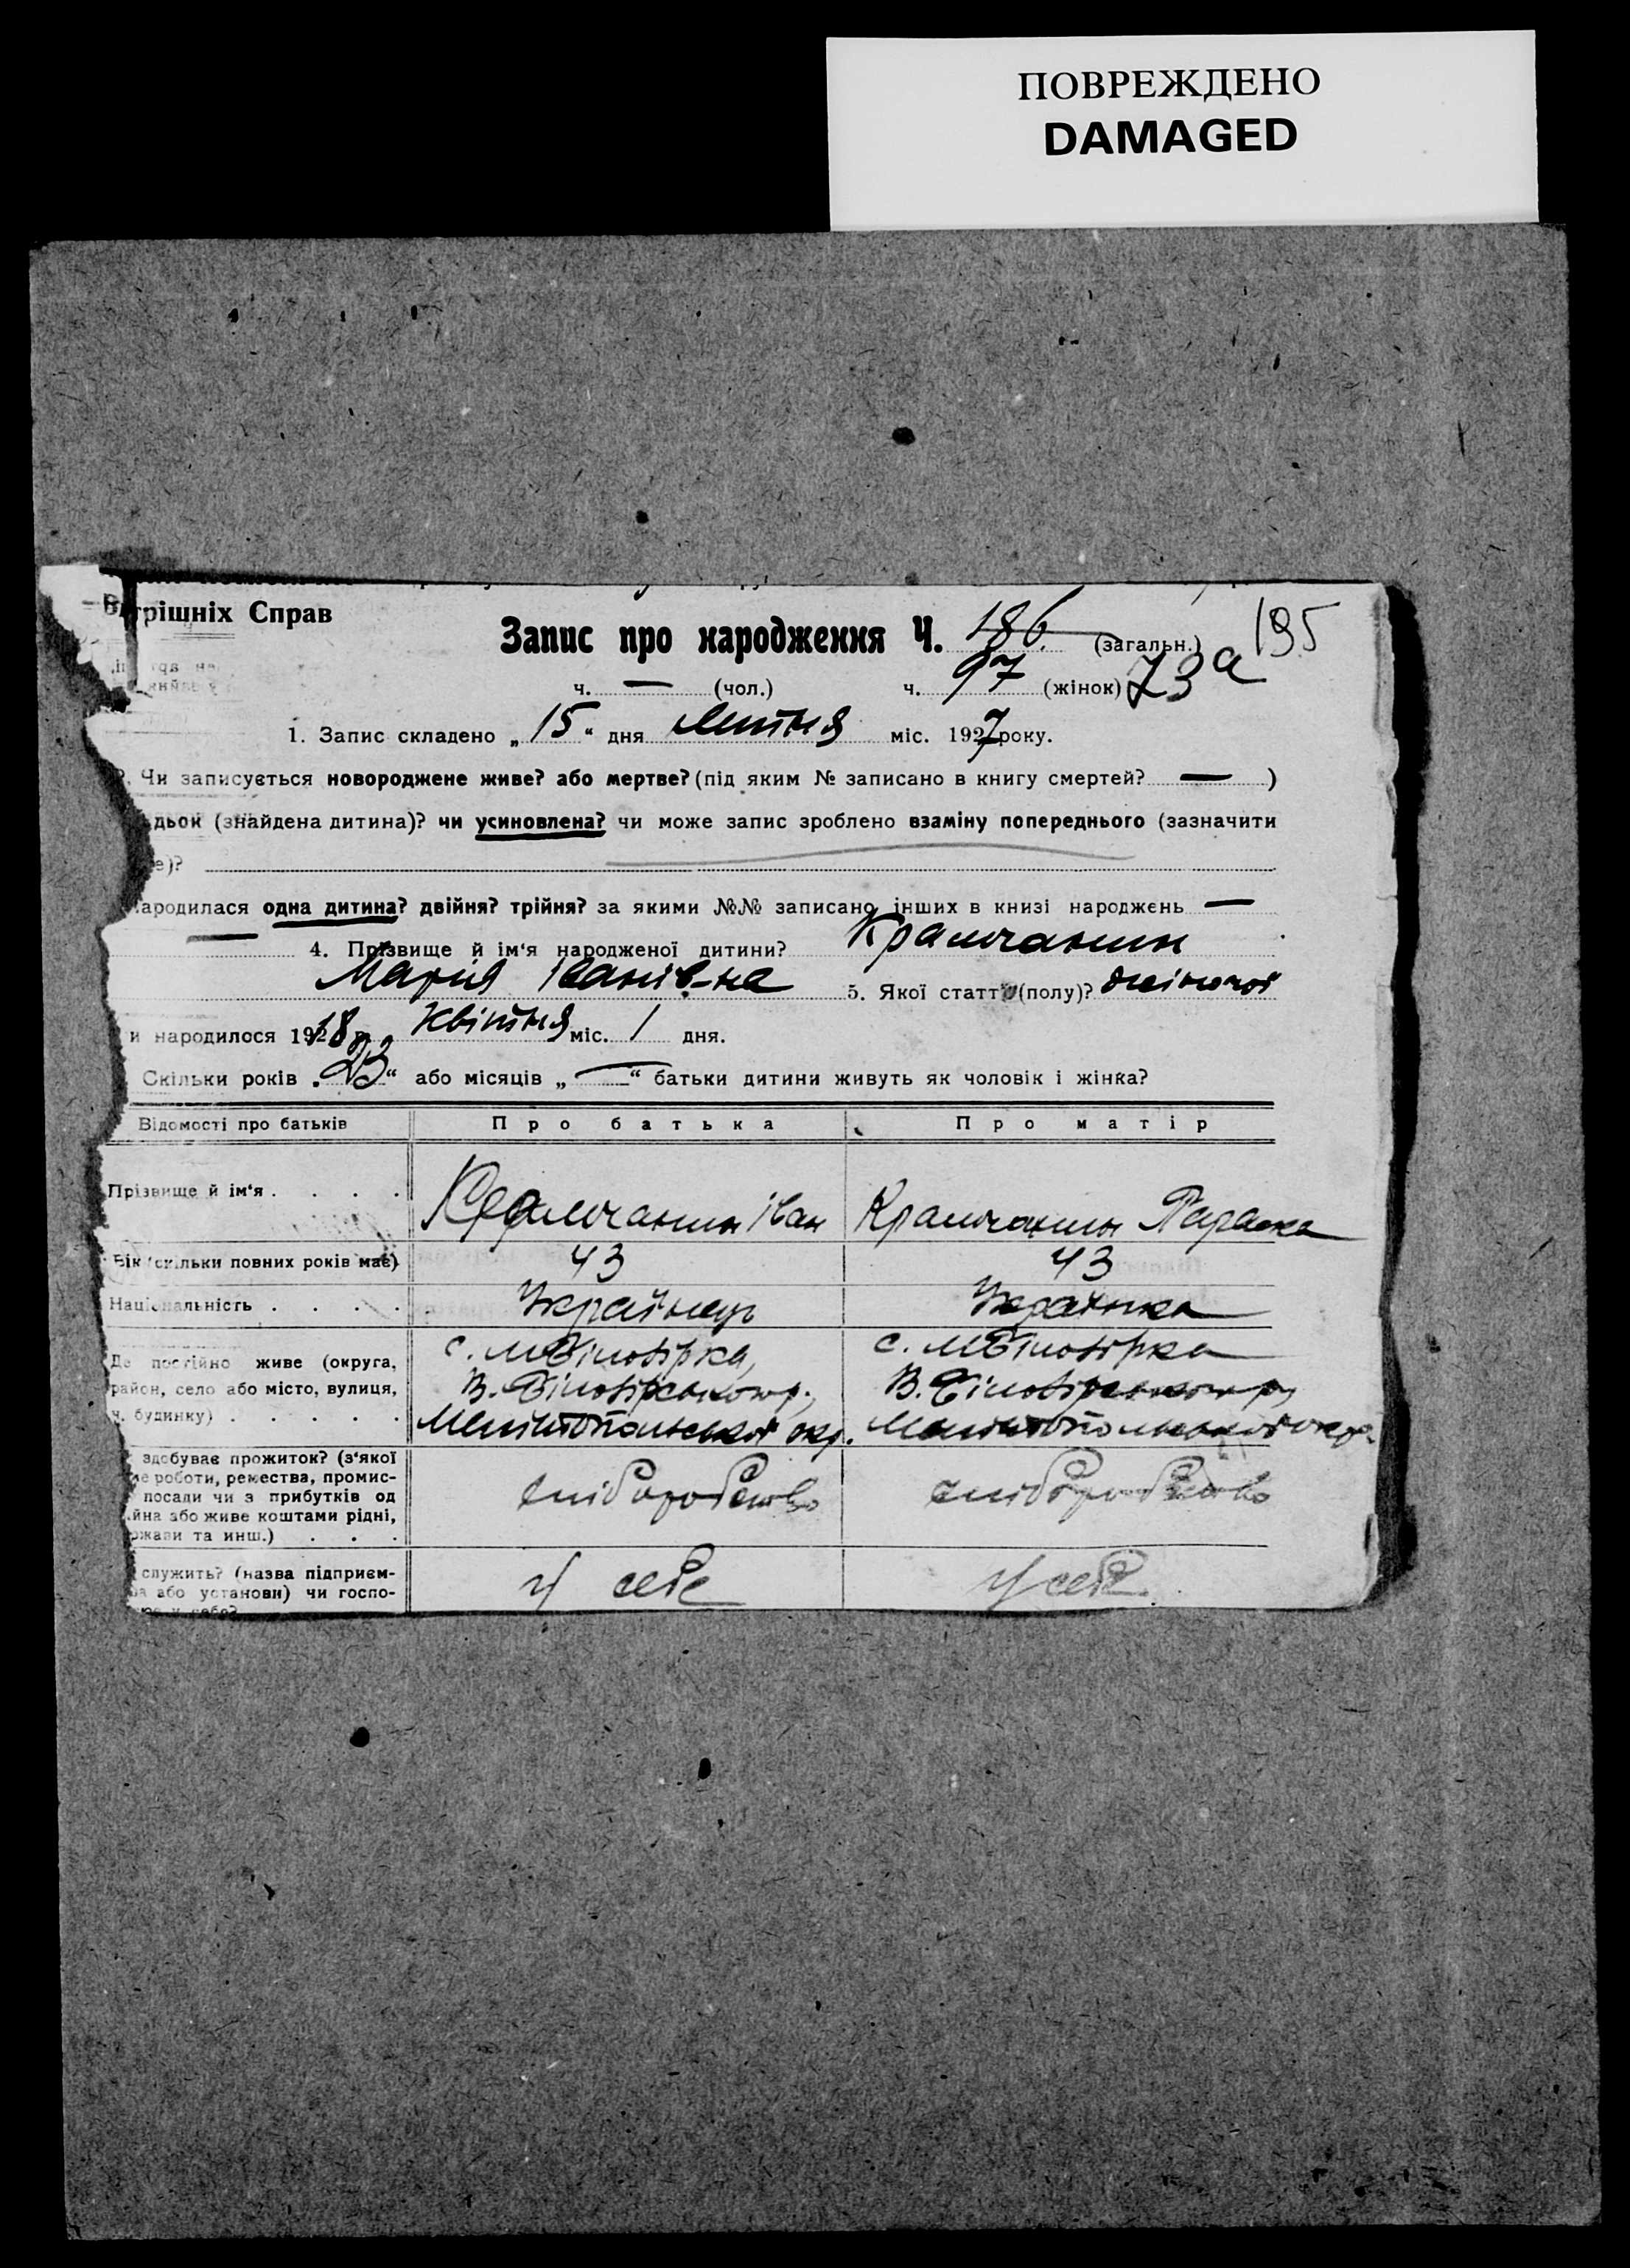 ПОВРЕЖДЕНО
DAMAGED
трішніх Справ
Запис про народження Ч. 186. (загальн.) 195
ч. — (чол.) ч. 97 (жінок) 73а
1. Запис складено „15“ дня липня міс. 1927 року.
Чи записується новороджене живе? або мертве? (під яким № записано в книгу смертей? — )
дьок (знайдена дитина)? чи усиновлена? чи може запис зроблено взаміну попереднього (зазначити
е)?
ародилася одна дитина? двійня? трійня? за якими №№ записано інших в книзі народжень —
— 4. Прізвище й ім‘я народженої дитини?
Марія Іванівна 5. Якої статті (полу)? жіночої
и народилося 1918 р. квітня міс. 1 дня.
Скільки років „23“ або місяців „—“ батьки дитини живуть як чоловік і жінка?
Відомості про батьків Про батька Про матір
Прізвище й ім‘я . . . . Іван Параска
Вік (скільки повних років має) 43 43
Національність . . . . Українець Українка
Де постійно живе (округа, район, село або місто, вулиця, ч. будинку) . . . . .
с. М Білозірка, В. Білозірського р., Мелітопольської окр.
с. М Білозірка В. Білозірського р, Мелітопольської окр.
здобуває прожиток? (з‘якої
роботи, ремества, промис-
посади чи з прибутків од
йна або живе коштами рідні,
ржави та инш.) . . .
хліборобство хліборобство
служить? (назва підприєм-
ва або установи) чи госпо-
у себе?
У себе У себе